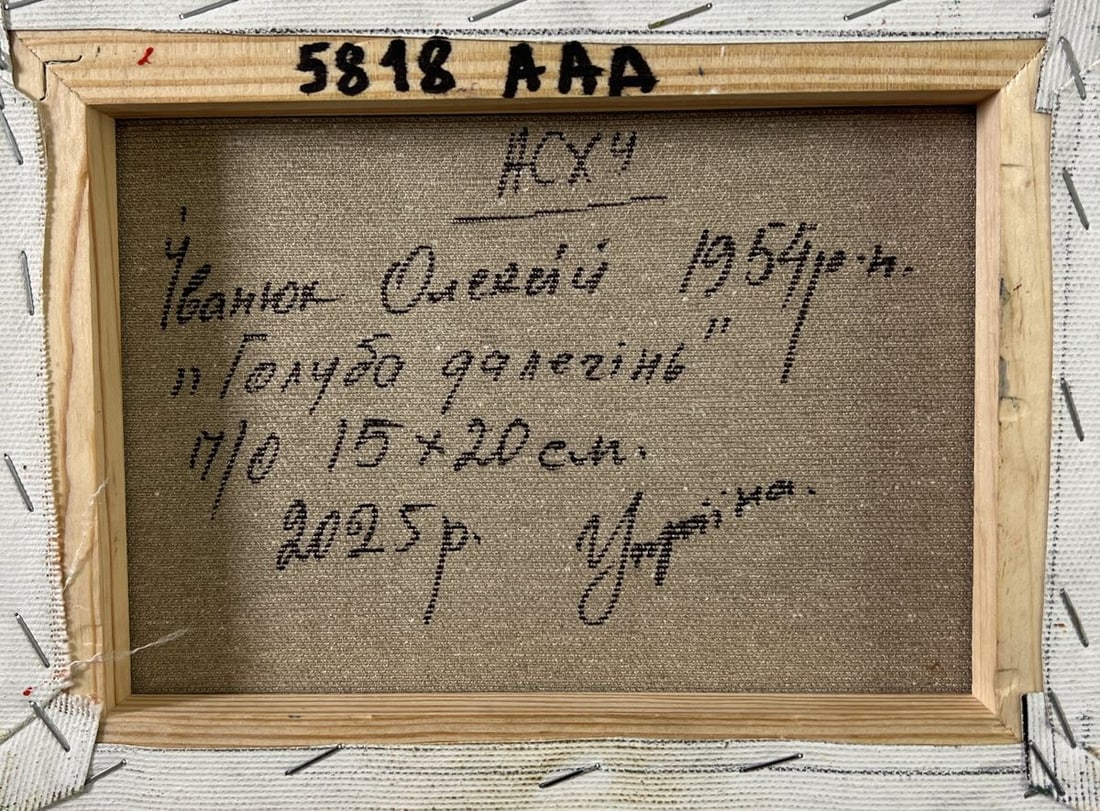 5818 ААА
НСХУ
Іванюк Олексій 1954р.н.
„Голуба далечінь"
п/о 15×20см.
2025р. Україна.